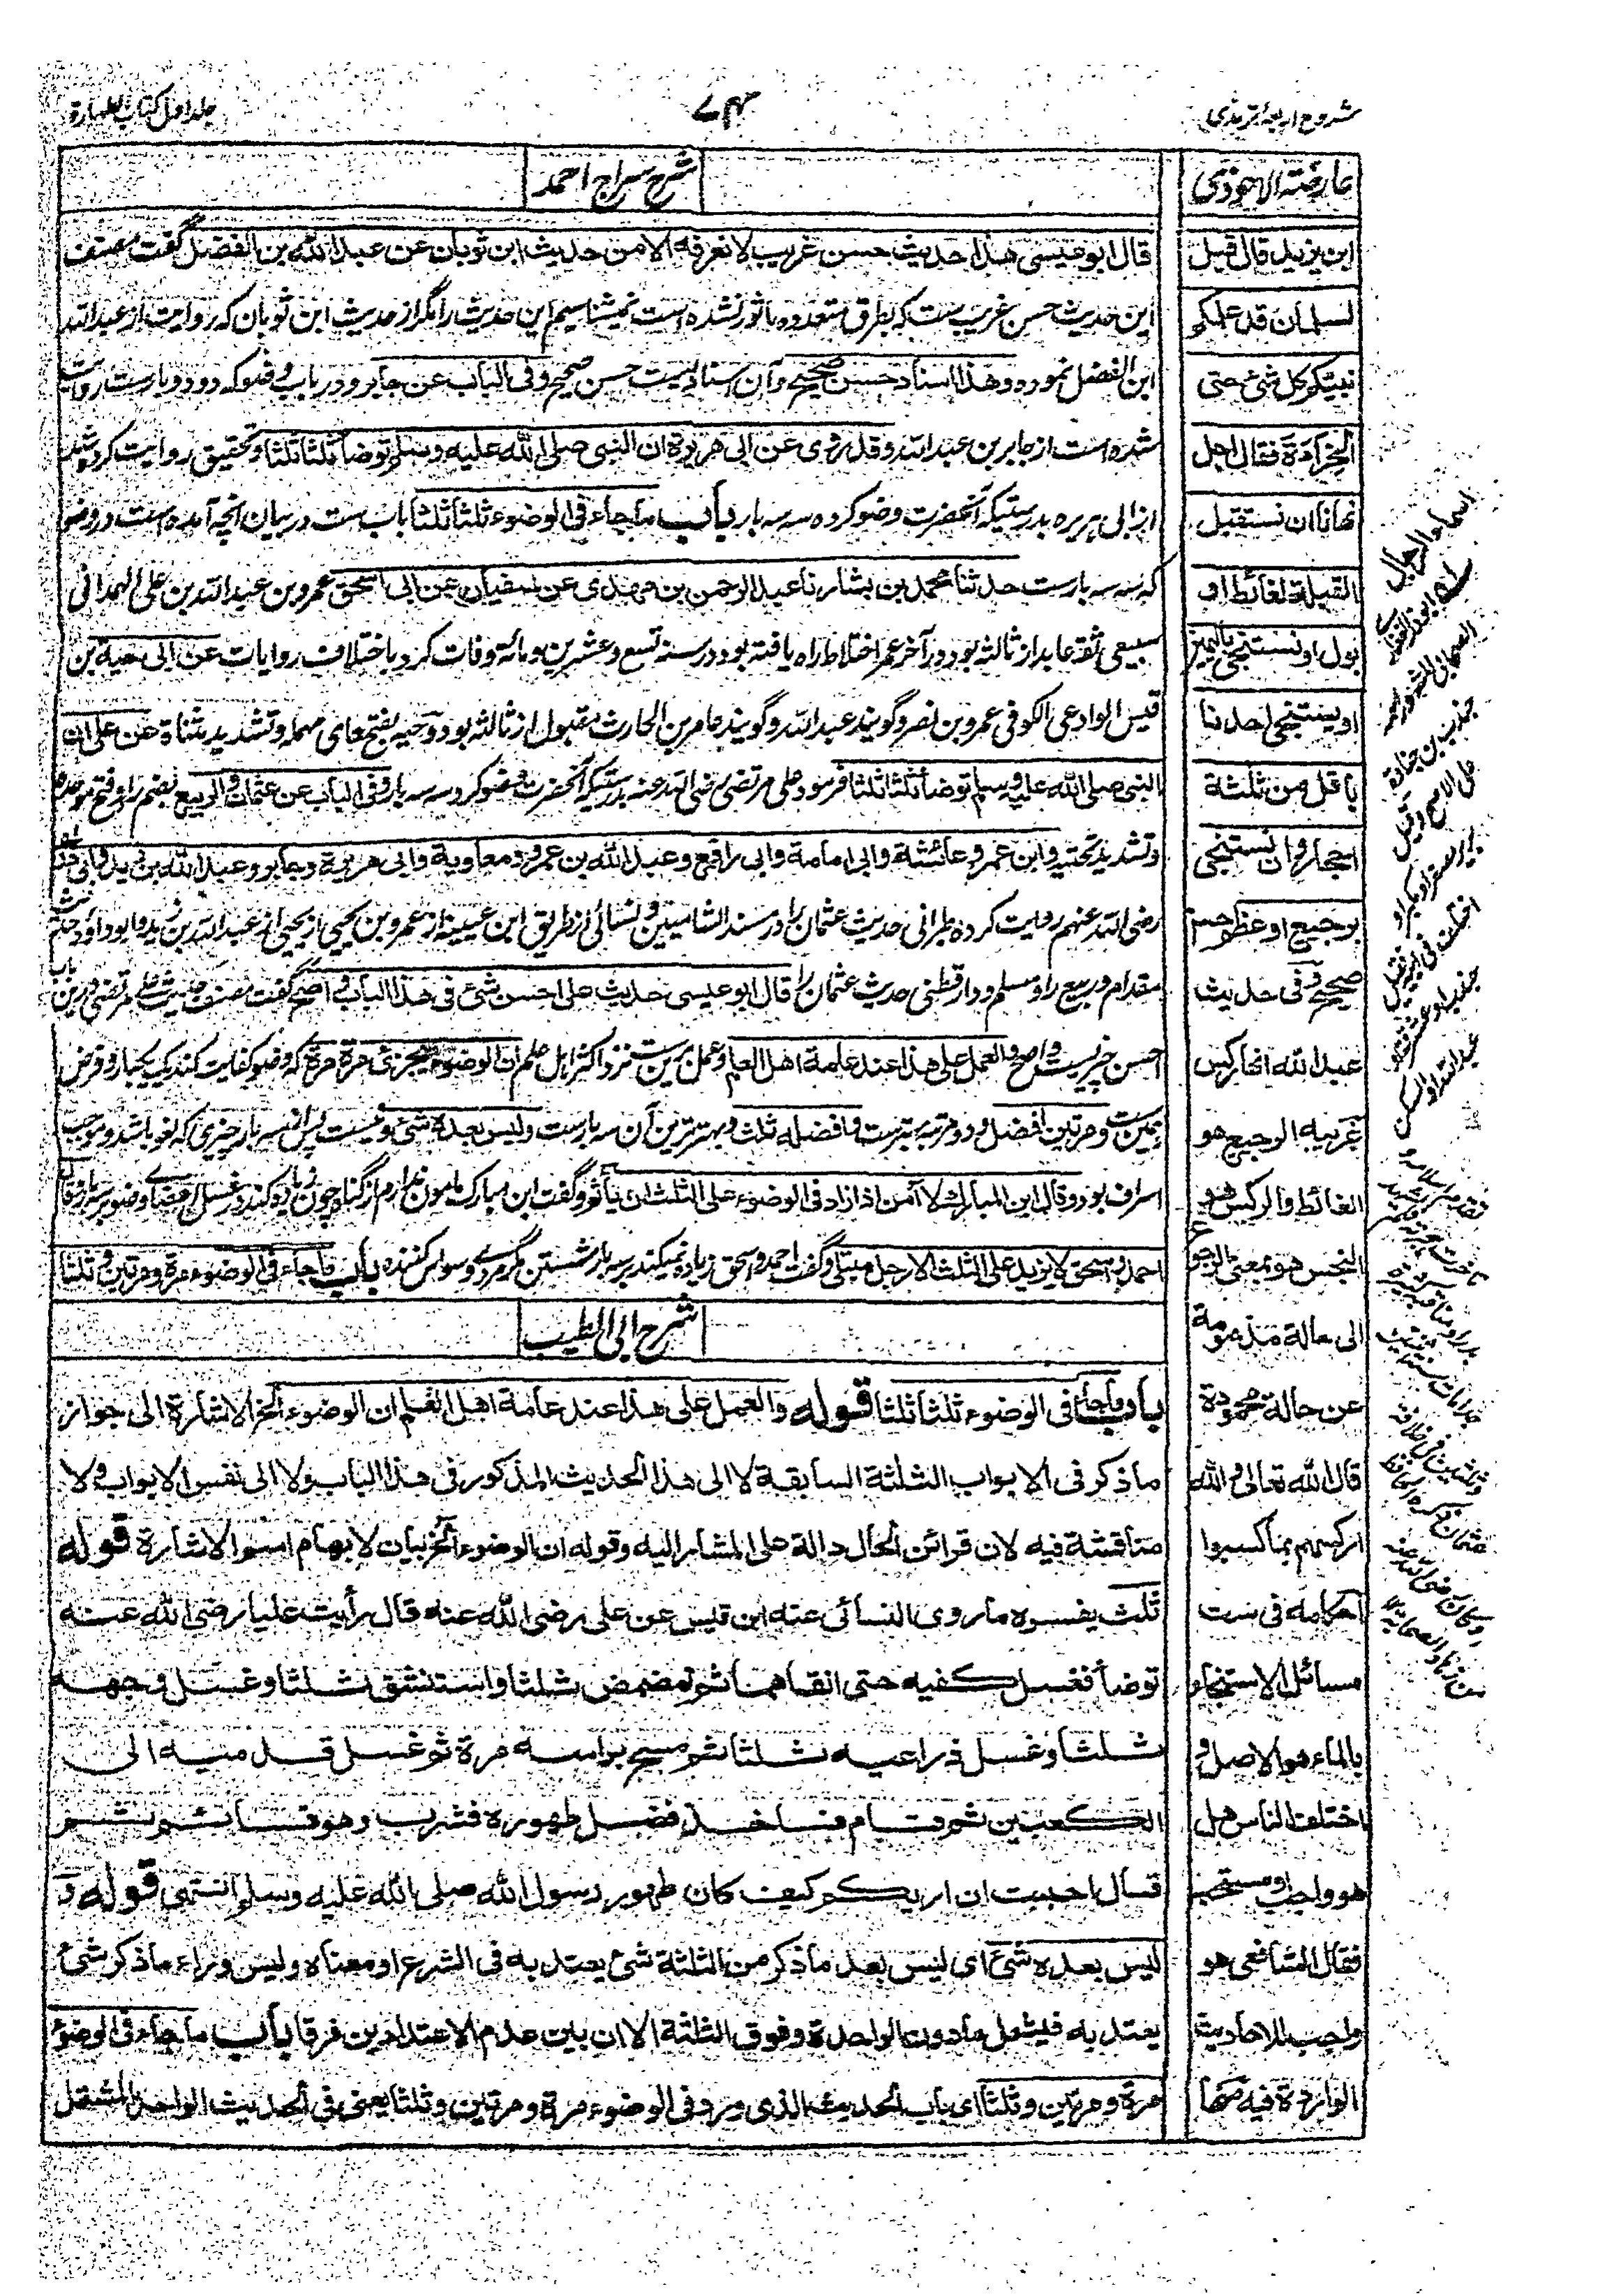 شروح اربعهٔ ترمذی
۷۴
جلد اول کتاب الطهارة
عارضة الاحوذی
ابن یزید قال قیل
لسلمان قد علمکم
نبیکم کل شئ حتی
الخراءة فقال اجل
نهانا ان نستقبل
القبلة لغائط او
بول او نستنجی بالیمین
او یستنجی احدنا
باقل من ثلثة
احجار وان نستنجی
برجیع او عظم حسن
صحیح وفی حدیث
عبد الله انها رکس
غریبه الرجیع هو
الغائط والرکس هو
النجس هو بمعنی الرجوع
الی حالة مذمومة
عن حالة محمودة
قال الله تعالی والله
ارکسهم بما کسبوا
احکامه فی ست
مسائل الاستنجاء
بالماء هو الاصل و
اختلف الناس هل
هو واجب او مستحب
فقال الشافعی هو
واجب للاحادیث
الواردة فیه
شرح سراج احمد
قال ابو عیسی هذا حدیث حسن غریب لا نعرفه الا من حدیث ابن ثوبان عن عبد الله بن الفضل گفت مصنف
این حدیث حسن غریب ست که بطرق متعدده ماثور نشده است نمیشناسیم این حدیث را مگر از حدیث ابن ثوبان که روایت از عبد الله
ابن الفضل نموده وهذا اسناد حسن صحیح وآن اسنادیست حسن صحیح وفی الباب عن جابر و در باب وضو که دو دو بارست روایت
شده است از جابر بن عبد الله وقد روی عن ابی هریرة ان النبی صلی الله علیه وسلم توضأ ثلثا ثلثا وتحقیق روایت کرده شد
از ابی هریره بدرستیکه آنحضرت وضو کرده سه سه بار باب ما جاء فی الوضوء ثلثا ثلثا باب ست در بیان آنچه آمده است در وضو
که سه سه بارست حدثنا محمد بن بشار نا عبد الرحمن بن مهدی عن سفیان عن ابی اسحق عمرو بن عبد الله بن علی الهمدانی
سبیعی ثقه عابد از ثالثه بود در آخر عمر اختلاط راه یافته بود در سنه تسع وعشرین ومائه وفات کرد باختلاف روایات عن ابی حیة بن
قیس الوادعی الکوفی عمرو بن نصر وگویند عبد الله وگویند عامر بن الحارث مقبول از ثالثه بود وحیه بفتح حای مهمله وتشدید مثناة عن علی ان
النبی صلی الله علیه وسلم توضأ ثلثا ثلثا فرمود علی مرتضی رضی الله عنه بدرستیکه آنحضرت وضو کرد سه سه بار وفی الباب عن عثمان والربیع بضم را وفتح موحده
وتشدید تحتیه وابن عمر وعائشة وابی امامة وابی رافع وعبد الله بن عمرو ومعاویة وابی هریرة وجابر وعبد الله بن زید وابی
رضی الله عنهم روایت کرده طبرانی حدیث عثمان را در مسند الشامیین ونسائی از طریق ابن عیینه از عمرو بن یحیی از یحیی از عبد الله بن زید وابو داؤد حدیث
مقدام وربیع را ومسلم ودارقطنی حدیث عثمان را قال ابو عیسی حدیث علی احسن شئ فی هذا الباب واصح گفت مصنف حدیث علی مرتضی درین
احسن چیزیست واصح والعمل علی هذا عند عامة اهل العلم وعمل برین ست نزد اکثر اهل علم ان الوضوء یجزئ مرة مرة که وضو کفایت کند یک یکبار وفرض
همین ست ومرتین افضل ودو مرتبه بهترست وافضله ثلث وبهترترین آن سه بارست ولیس بعده شئ ونیست پس از سه بار چیزی که لغو باشد وموجب
اسراف بود وقال ابن المبارک لا آمن اذا زاد فی الوضوء علی الثلث ان یأثم وگفت ابن مبارک مامون ندارم از گناه چون زیاده کند در غسل اعضای وضو بر سه بار وقال
احمد واسحق لا یزید علی الثلث الا رجل مبتلی وگفت احمد واسحق زیاده نمیکند بر سه بار شستن مگر مردی وسواس کننده باب ما جاء فی الوضوء مرة ومرتین وثلثا
شرح ابی الطیب
باب ما جاء فی الوضوء ثلثا ثلثا قوله والعمل علی هذا عند عامة اهل العلم ان الوضوء الخ الاشارة الی جواز
ما ذکر فی الابواب الثلثة السابقة لا الی هذا الحدیث المذکور فی هذا الباب ولا الی نفس الابواب ولا
مناقشة فیه لان قرائن الحال دالة علی المشار الیه وقوله ان الوضوء الخ بیان لابهام اسم الاشارة قوله
ثلث یفسره ما روی النسائی عنه ابن قیس عن علی رضی الله عنه قال رأیت علیا رضی الله عنه
توضأ فغسل کفیه حتی انقاهما ثم تمضمض ثلثا واستنشق ثلثا وغسل وجهه
ثلثا وغسل ذراعیه ثلثا ثم مسح براسه مرة ثم غسل قدمیه الی
الکعبین ثم قام فاخذ فضل طهوره فشرب وهو قائم ثم
قال احببت ان اریکم کیف کان طهور رسول الله صلی الله علیه وسلم انتهی قوله و
لیس بعده شئ ای لیس بعد ما ذکر من الثلثة شئ یعتد به فی الشرع او معناه ولیس وراء ما ذکر شئ
یعتد به فیشمل ما دون الواحدة وفوق الثلثة الا ان بین عدم الاعتدادین فرقا باب ما جاء فی الوضوء
مرة ومرتین وثلثا ای باب الحدیث الذی ورد فی الوضوء مرة ومرتین وثلثا یعنی فی الحدیث الواحد المشتمل
اسماء الرجال
ابوذر الغفاری
الصحابی المشهور اسمه
جندب بن جنادة
علی الاصح وقیل